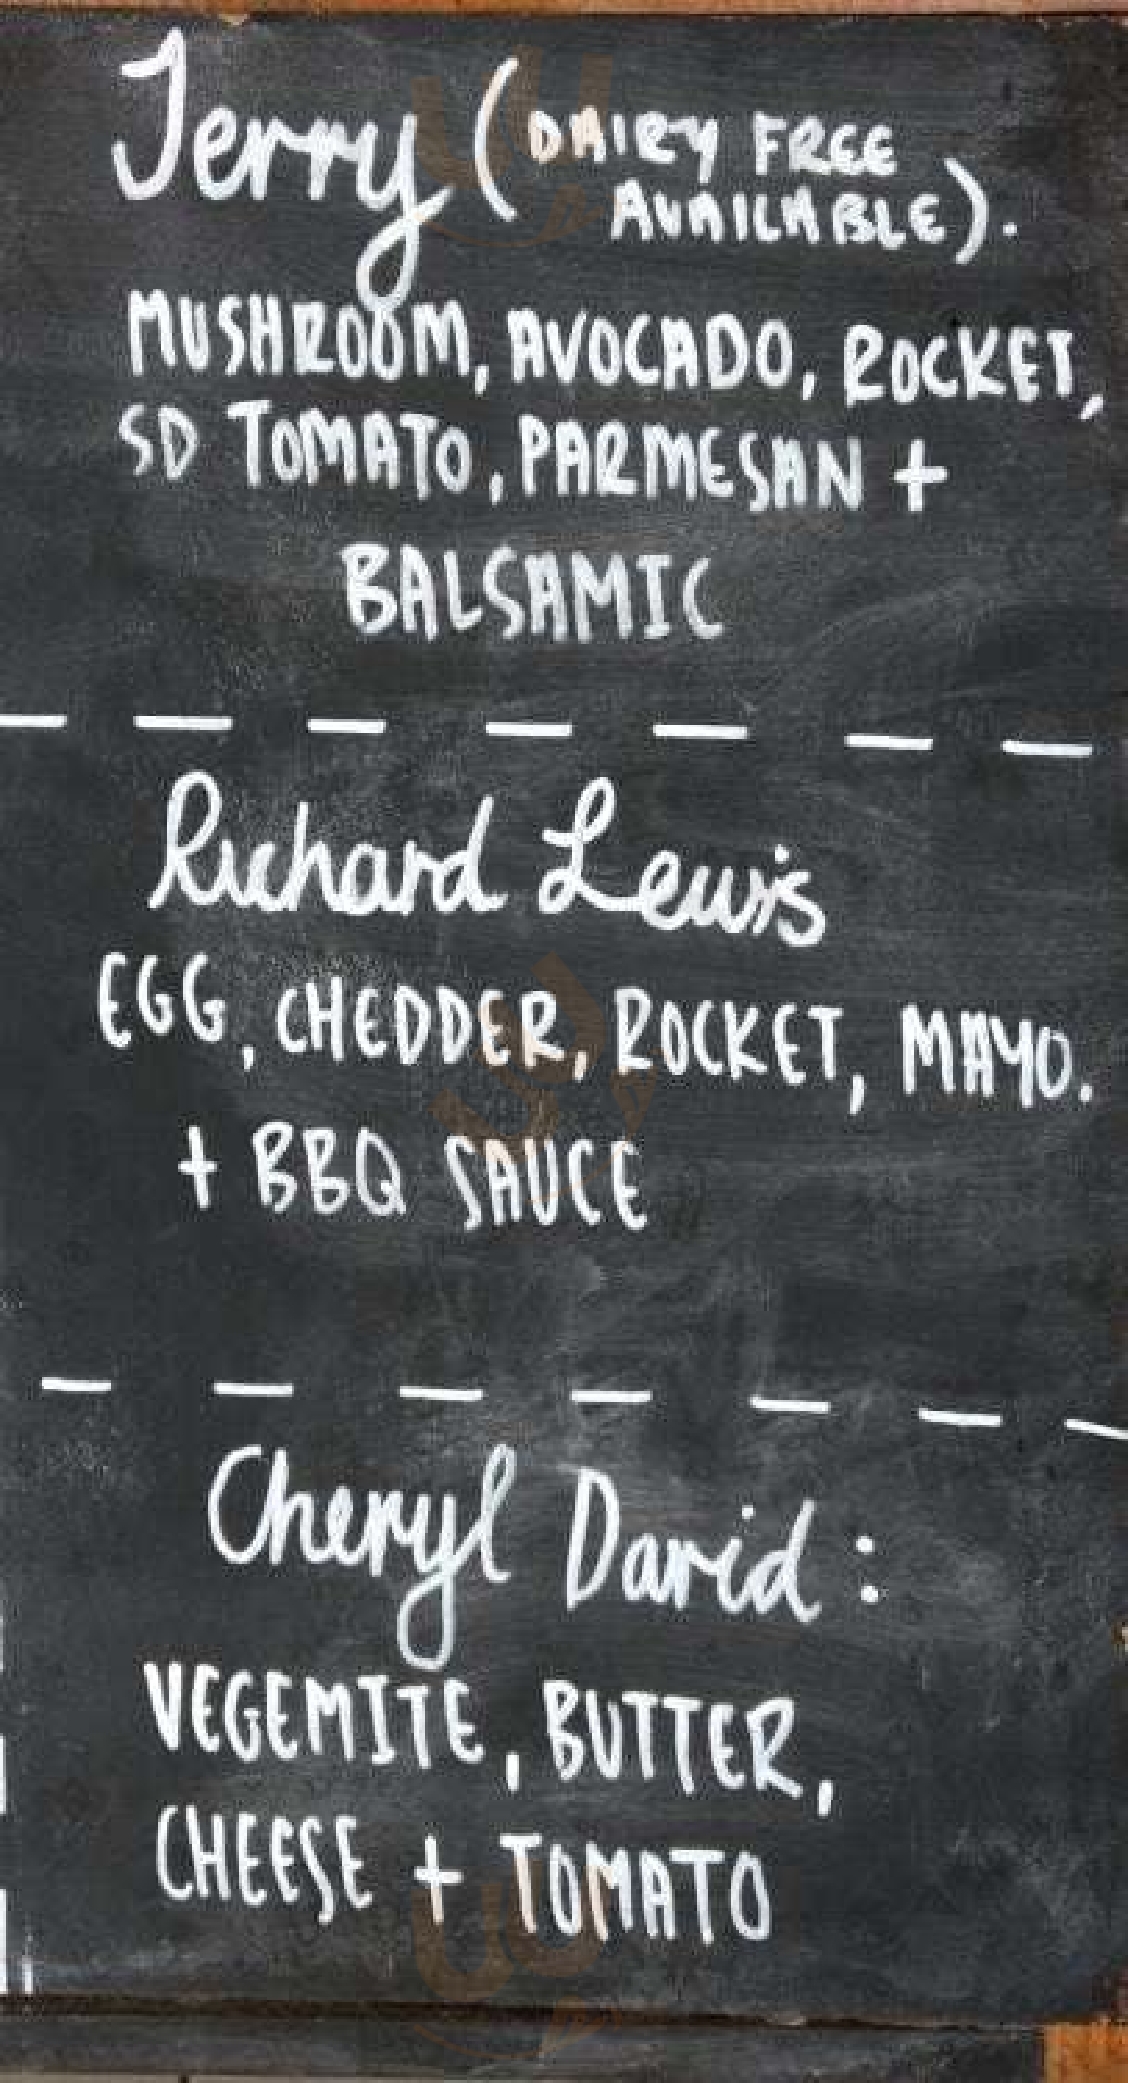 Jerry (DAIRY FREE
AVAILABLE).
MUSHROOM, AVOCADO, ROCKET,
SD TOMATO, PARMESAN +
BALSAMIC
Richard Lewis
EGG, CHEDDER, ROCKET, MAYO.
+ BBQ SAUCE
Cheryl David:
VEGEMITE, BUTTER,
CHEESE + TOMATO